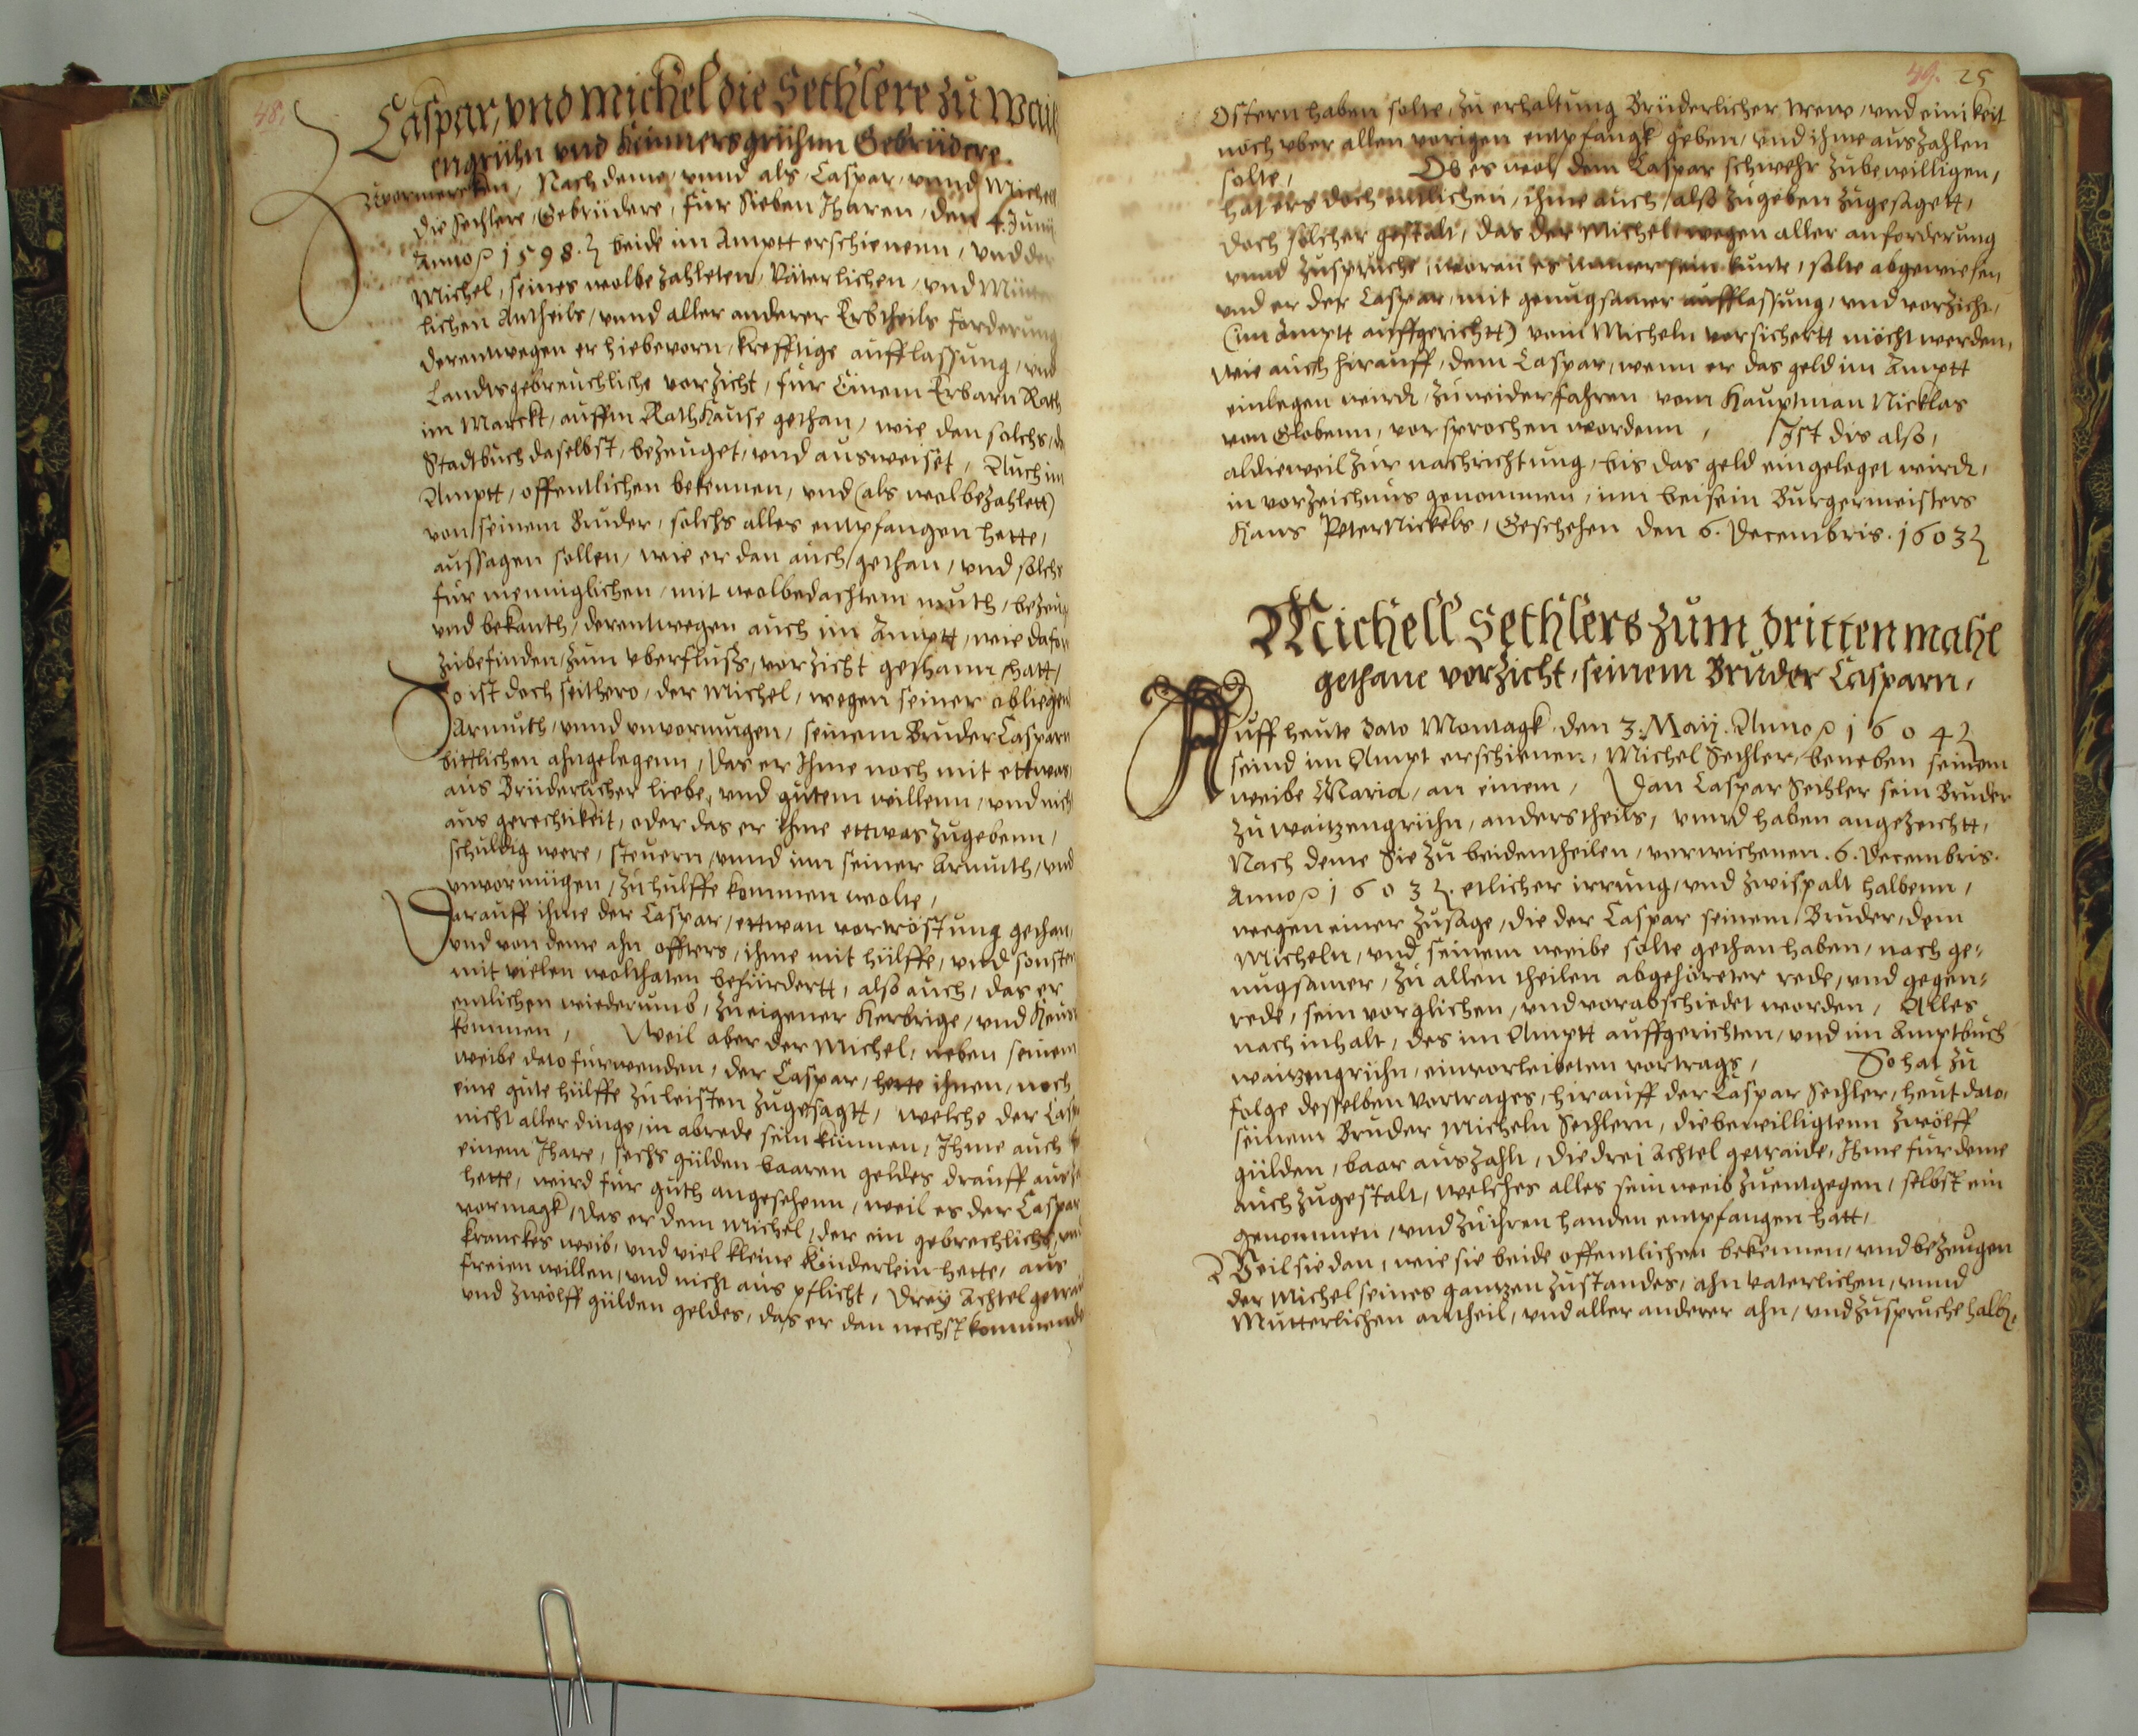 48.
Caspar, vnd Michel die Sethlere zu Wai
engrühn vnd Kimmersgrühnn Gebrüdere.
Zuvormercken, Nach deme, vnnd als, Caspar, vnnd Michell
die Sethlere, Gebrüdere, für Sieben Jharen, den 4. Junij
Anno 1598. beide im Amptt erschienenn, vnd der
Michel, seines wolbezahleten, Väterlichen, vnd Mütter
lichen Antheils, vnnd aller anderer Erbtheils forderung
derentwegen er hiebevorn, krefftige aufflassung, vnd
Landtsgebreuchliche vorzicht, für Einem Erbarn Rath
im Marckt, auffm Rathhause gethan, wie den solchs, d
Stadtbuch daselbst, bezeuget, vnd ausweiset, Auch im
Amptt, offentlichen bekennen, vnd (als wolbezahlett)
von seinem Bruder, solchs alles entpfangen hette,
aussagen sollen, wie er dan auch gethan, vnd solchs
für menniglichen, mit wolbedachtem muth, bezeug
vnd bekanth, derentwegen auch im Amptt, wie dafor
zubefinden, zum vberfluss, vorzicht gethann hatt,
So ist doch seithero, der Michel, wegen seiner obliegen
Armuth, vnnd vnvormugen, seinem Bruder Casparn
bittlichen ahngelegenn, das er Ihme noch mit ettwas
aus Brüderlicher liebe, vnd gutem willenn, vnd nich
aus gerechtikeit, oder das er Ihme ettwas zugebenn,
schuldig were, steuern, vnnd inn seiner Armuth, vnd
vnvormügen, zu hulffe kommen wolte,
Darauff ihme der Caspar, ettwan vortröstung gethan,
vnd von deme ahn offters, ihme mit hülffe, vnd sonsten
mit vielen wolthaten befürdertt, also auch, das er
entlichen wiederumb, zu eigener Herbrige, vnd Heus
kommen, Weil aber der Michel, neben seinem
weibe dato furwenden, der Caspar, hette ihnen, noch
eine gute hülffe zu leisten zugesagtt, welche der Cas
nicht aller dings, in abrede sein künnen, Ihme auch
einem Jhare, sechs gülden baaren geldes drauff aus
hette, wird für guth angesehenn, weil es der Caspar
vormagk, das er dem Michel, der ein gebrechlichs, vnd
kranckes weib, vnd viel kleine Kinderlein hette, aus
freien willen, vnd nicht aus pflicht, drey Achtel getrai
vnd zwölff gülden geldes, das er dan nechst kommende
49. 25
Ostern haben solte, zu erhaltung Brüderlicher trew, vnd einikeit
noch vber allen vorigen entpfangk geben, vnd ihme auszahlen
solte, Ob es wol dem Caspar schwehr zubewilligen,
hat ers doch entlichen, ihme auch, also zugeben zugesagett,
doch solcher gestalt, das der Michel, wegen aller anforderung
vnnd zuspruche, woran es immer sein kunte, solte abgewiesen,
vnd er der Caspar, mit genugsamer aufflassung, vnd vorzicht,
(im Amptt auffgerichtt) vom Micheln vorsichertt möcht werden,
wie auch hirauff, dem Caspar, wenn er das geld im Amptt
einlegen wirdt, zuwiderfahren vom Hauptman Nicklas
von Globenn, vorsprochen wordenn, Ist dis also,
aldieweil zur nachrichtung, bis das geld eingeleget wirdt,
in vorzeichnus genommen, inn beisein Burgermeisters
Hans Peter Nickels, Geschehen den 6. Decembris. 1603
Michell Sethlers zum dritten mahl
gethane vorzicht, seinem Bruder Casparn,
Auff heute dato Montagk den 3. Maij. Anno 1604
seind im Ampt erschienen, Michel Sethler, beneben seinem
weibe Maria, an einem, Dan Caspar Sethler sein Bruder
zu Waitzengrühn, anderstheils, vnnd haben angezeichtt,
Nach deme Sie zu beidentheilen, verwichenen. 6. Decembris.
Anno 1603. etlicher irrung, vnd zwispalt halbenn,
wegen einer zusage, die der Caspar seinem Bruder, dem
Micheln, vnd seinem weibe solte gethan haben, nach ge-
nugsamer, zu allen theilen abgehöreter rede, vnd gegen-
rede, sein vorglichen, vnd vorabschiedet worden, Alles
nach inhalt, des im Amptt auffgerichten, vnd im Amptbuch
Waitzengrühn, einvorleibeten vortrags, So hat zu
folge desselben Vortrages, hirauff der Caspar Sethler, heut dato,
seinem Bruder Micheln Sethlern, die bewilligtenn zwölff
gülden, baar auszahlt, die drei Achtel getraide, Ihme fur deme
auch zugestalt, welches alles sein weib zuentgegen, selbst ein
genommen, vnd zu ihren handen entpfangen hatt,
Weil sie dan, wie sie beide offentlichen bekennen, vnd bezeugen
der Michel seines gantzen zustandes, ahn Vaterlichen, vnnd
Mutterlichen antheil, vnd aller anderer ahn, vnd zuspruche halb